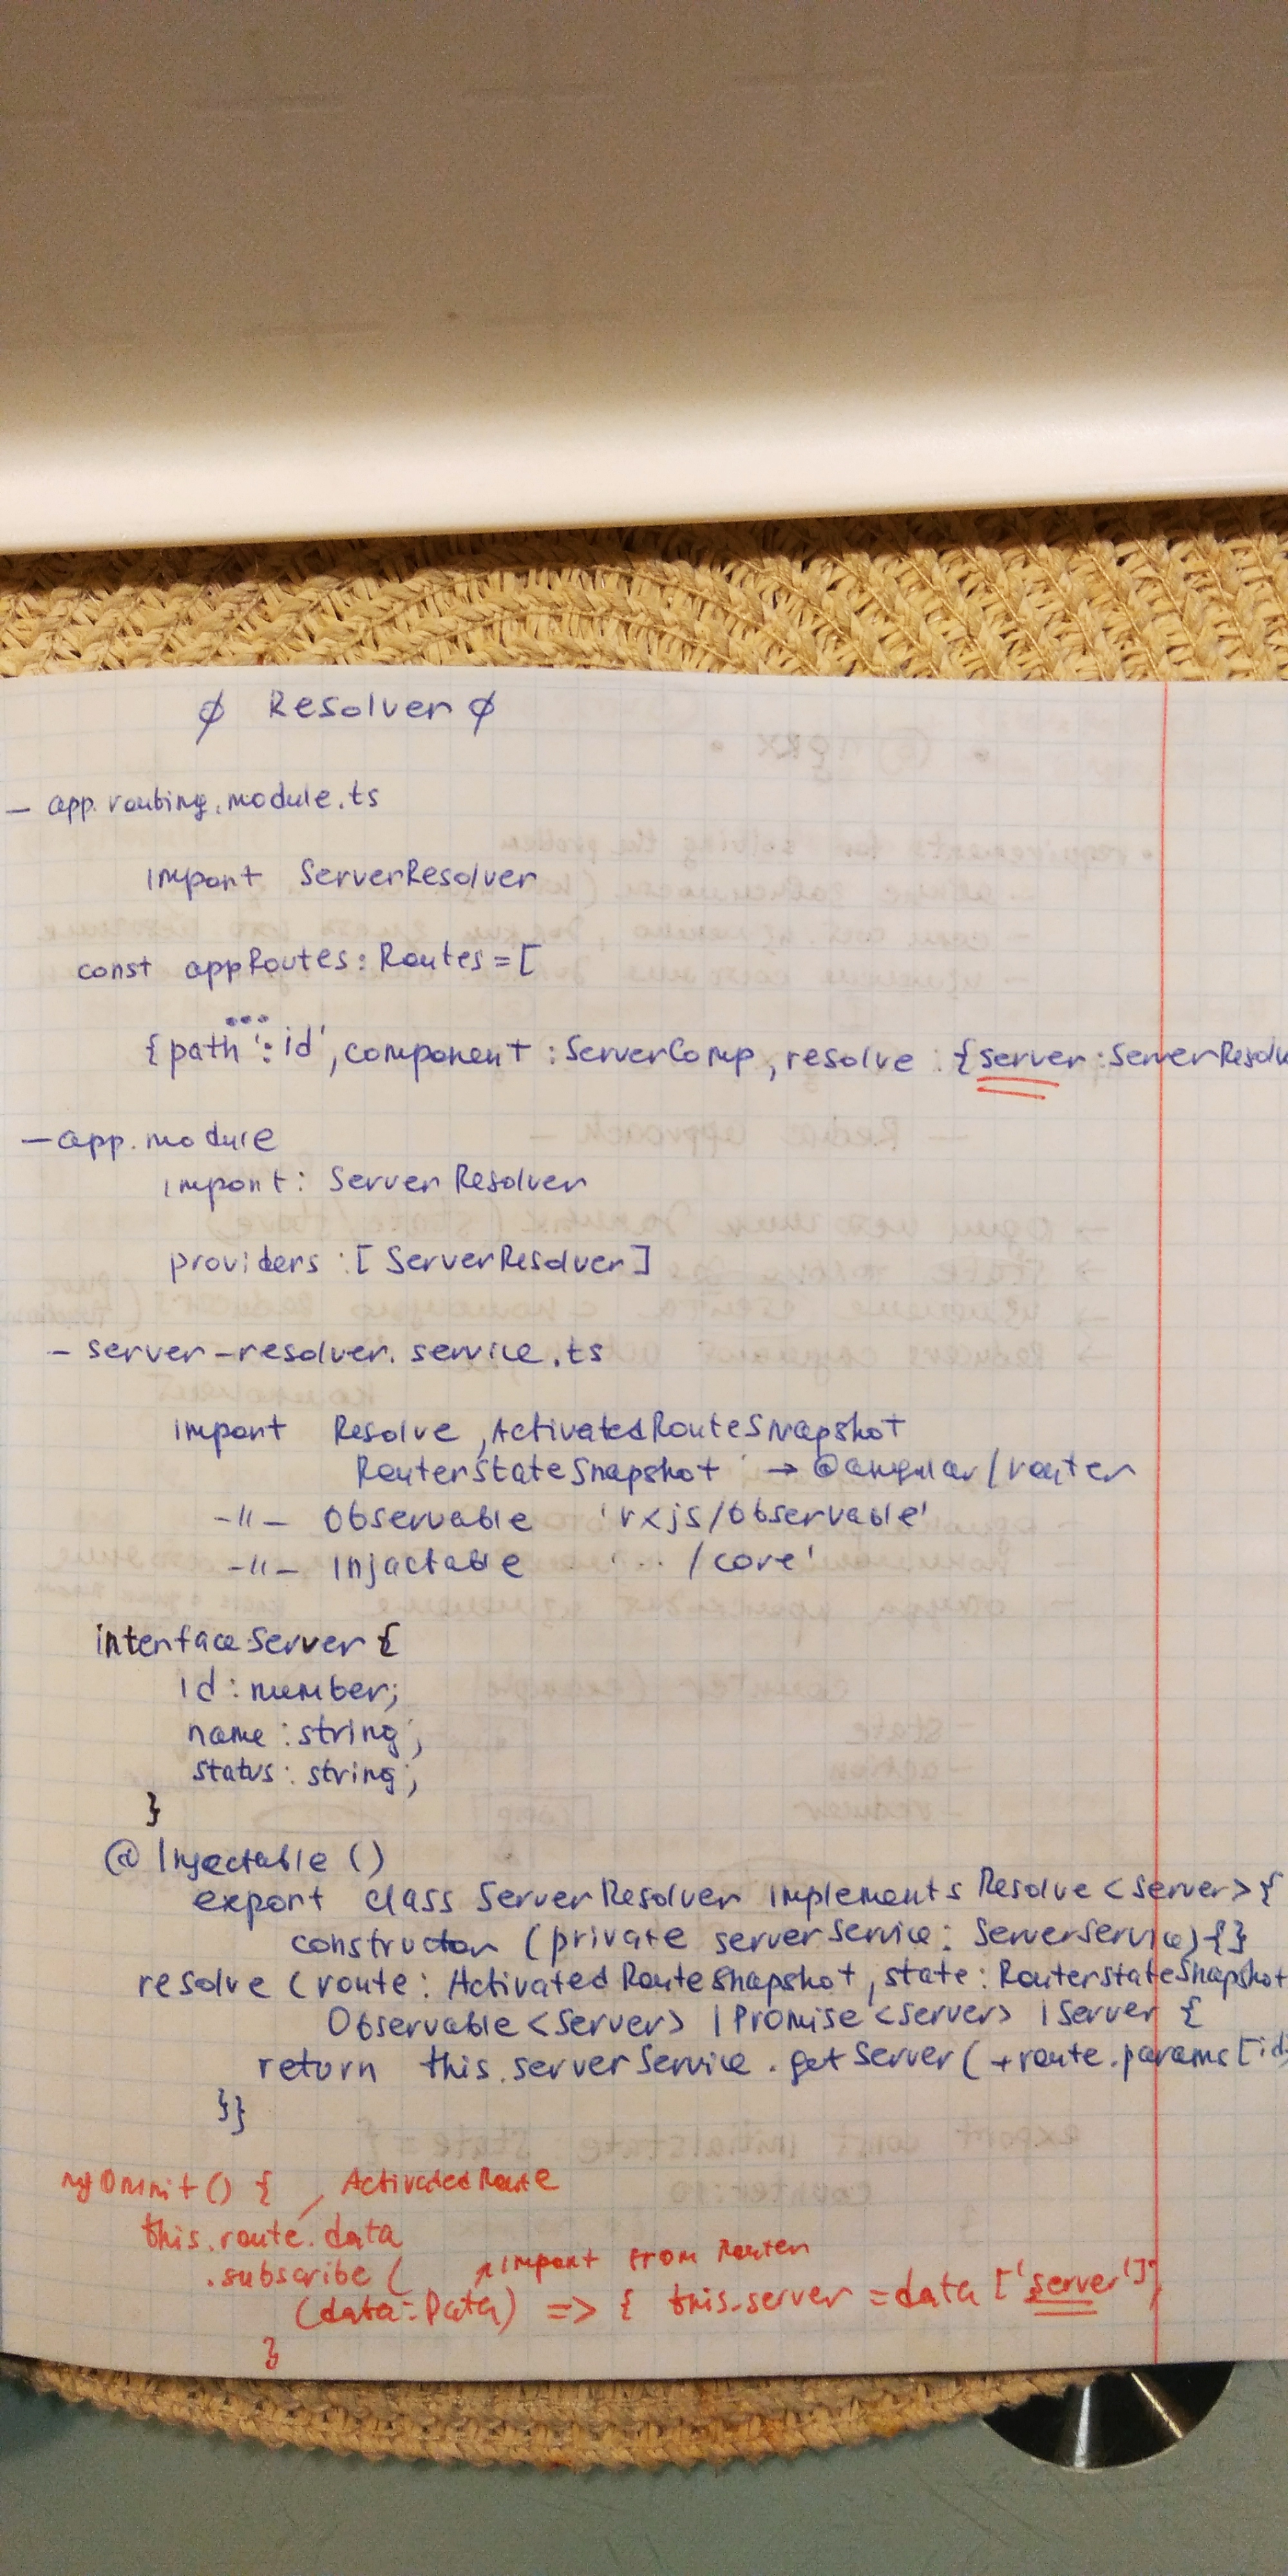 ∅ Resolver ∅
- app.routing.module.ts
import ServerResolver
const appRoutes: Routes = [
...
{path ':id', component : ServerComp, resolve : {server : ServerResolv
- app.module
import: ServerResolver
providers : [ServerResolver]
- server-resolver.service.ts
import Resolve, ActivatedRouteSnapshot
RouterStateSnapshot → @angular/router
-"- Observable 'rxjs/Observable'
-"- Injactable '... /core'
interface Server {
id : number;
name : string;
status : string;
}
@Injectable ()
export class ServerResolver implements Resolve <Server> {
constructor (private serverService: ServerService) {}
resolve (route: ActivatedRouteSnapshot, state: RouterStateSnapshot
Observable <Server> | Promise <Server> | Server {
return this.serverService.getServer(+route.params[id
}}
ngOnInit() { ActivatedRoute
this.route.data
.subscribe ( import from Router
(data: Data) => { this.server = data ['server']
}